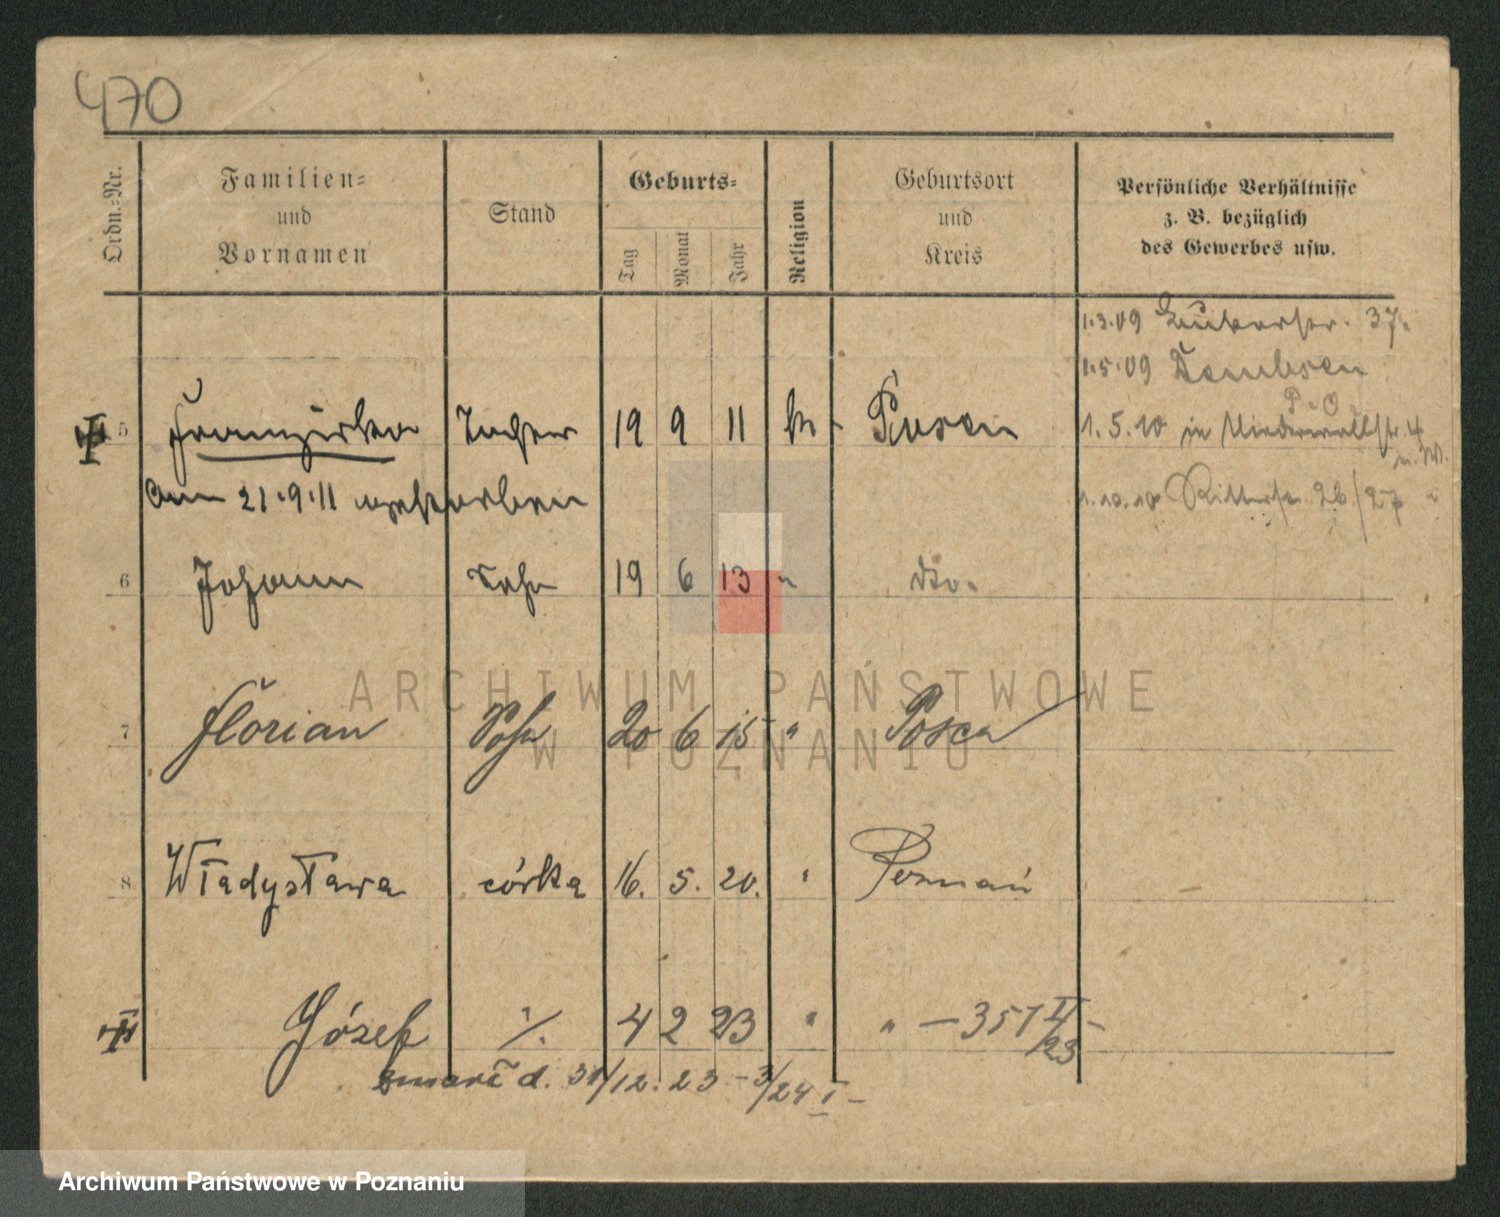 470
Ordn.-Nr.
Familien-
und
Vornamen
Stand
Geburts-
Tag
Monat
Jahr
Religion
Geburtsort
und
Kreis
Persönliche Verhältnisse
z. B. bezüglich
des Gewerbes usw.
1.3.09 37.
1.5.09 Dembsen
5 Franziska Tochter 19 9 11 k. Posen 1.5.10 in Niederwallstr. 4
am 21.9.11 verstorben 1.10.10 Ritterstr. 26/27
6 Johann Sohn 19 6 13 " dto.
7 Florian Sohn 20 6 15 " Posen
8 Władysława córka 16. 5. 20. " Poznań
Józef /. 4 2 23 " " – 351 II/23 –
zmarł d. 31/12. 23 – 3/24 I –
ARCHIWUM PAŃSTWOWE
W POZNANIU
Archiwum Państwowe w Poznaniu